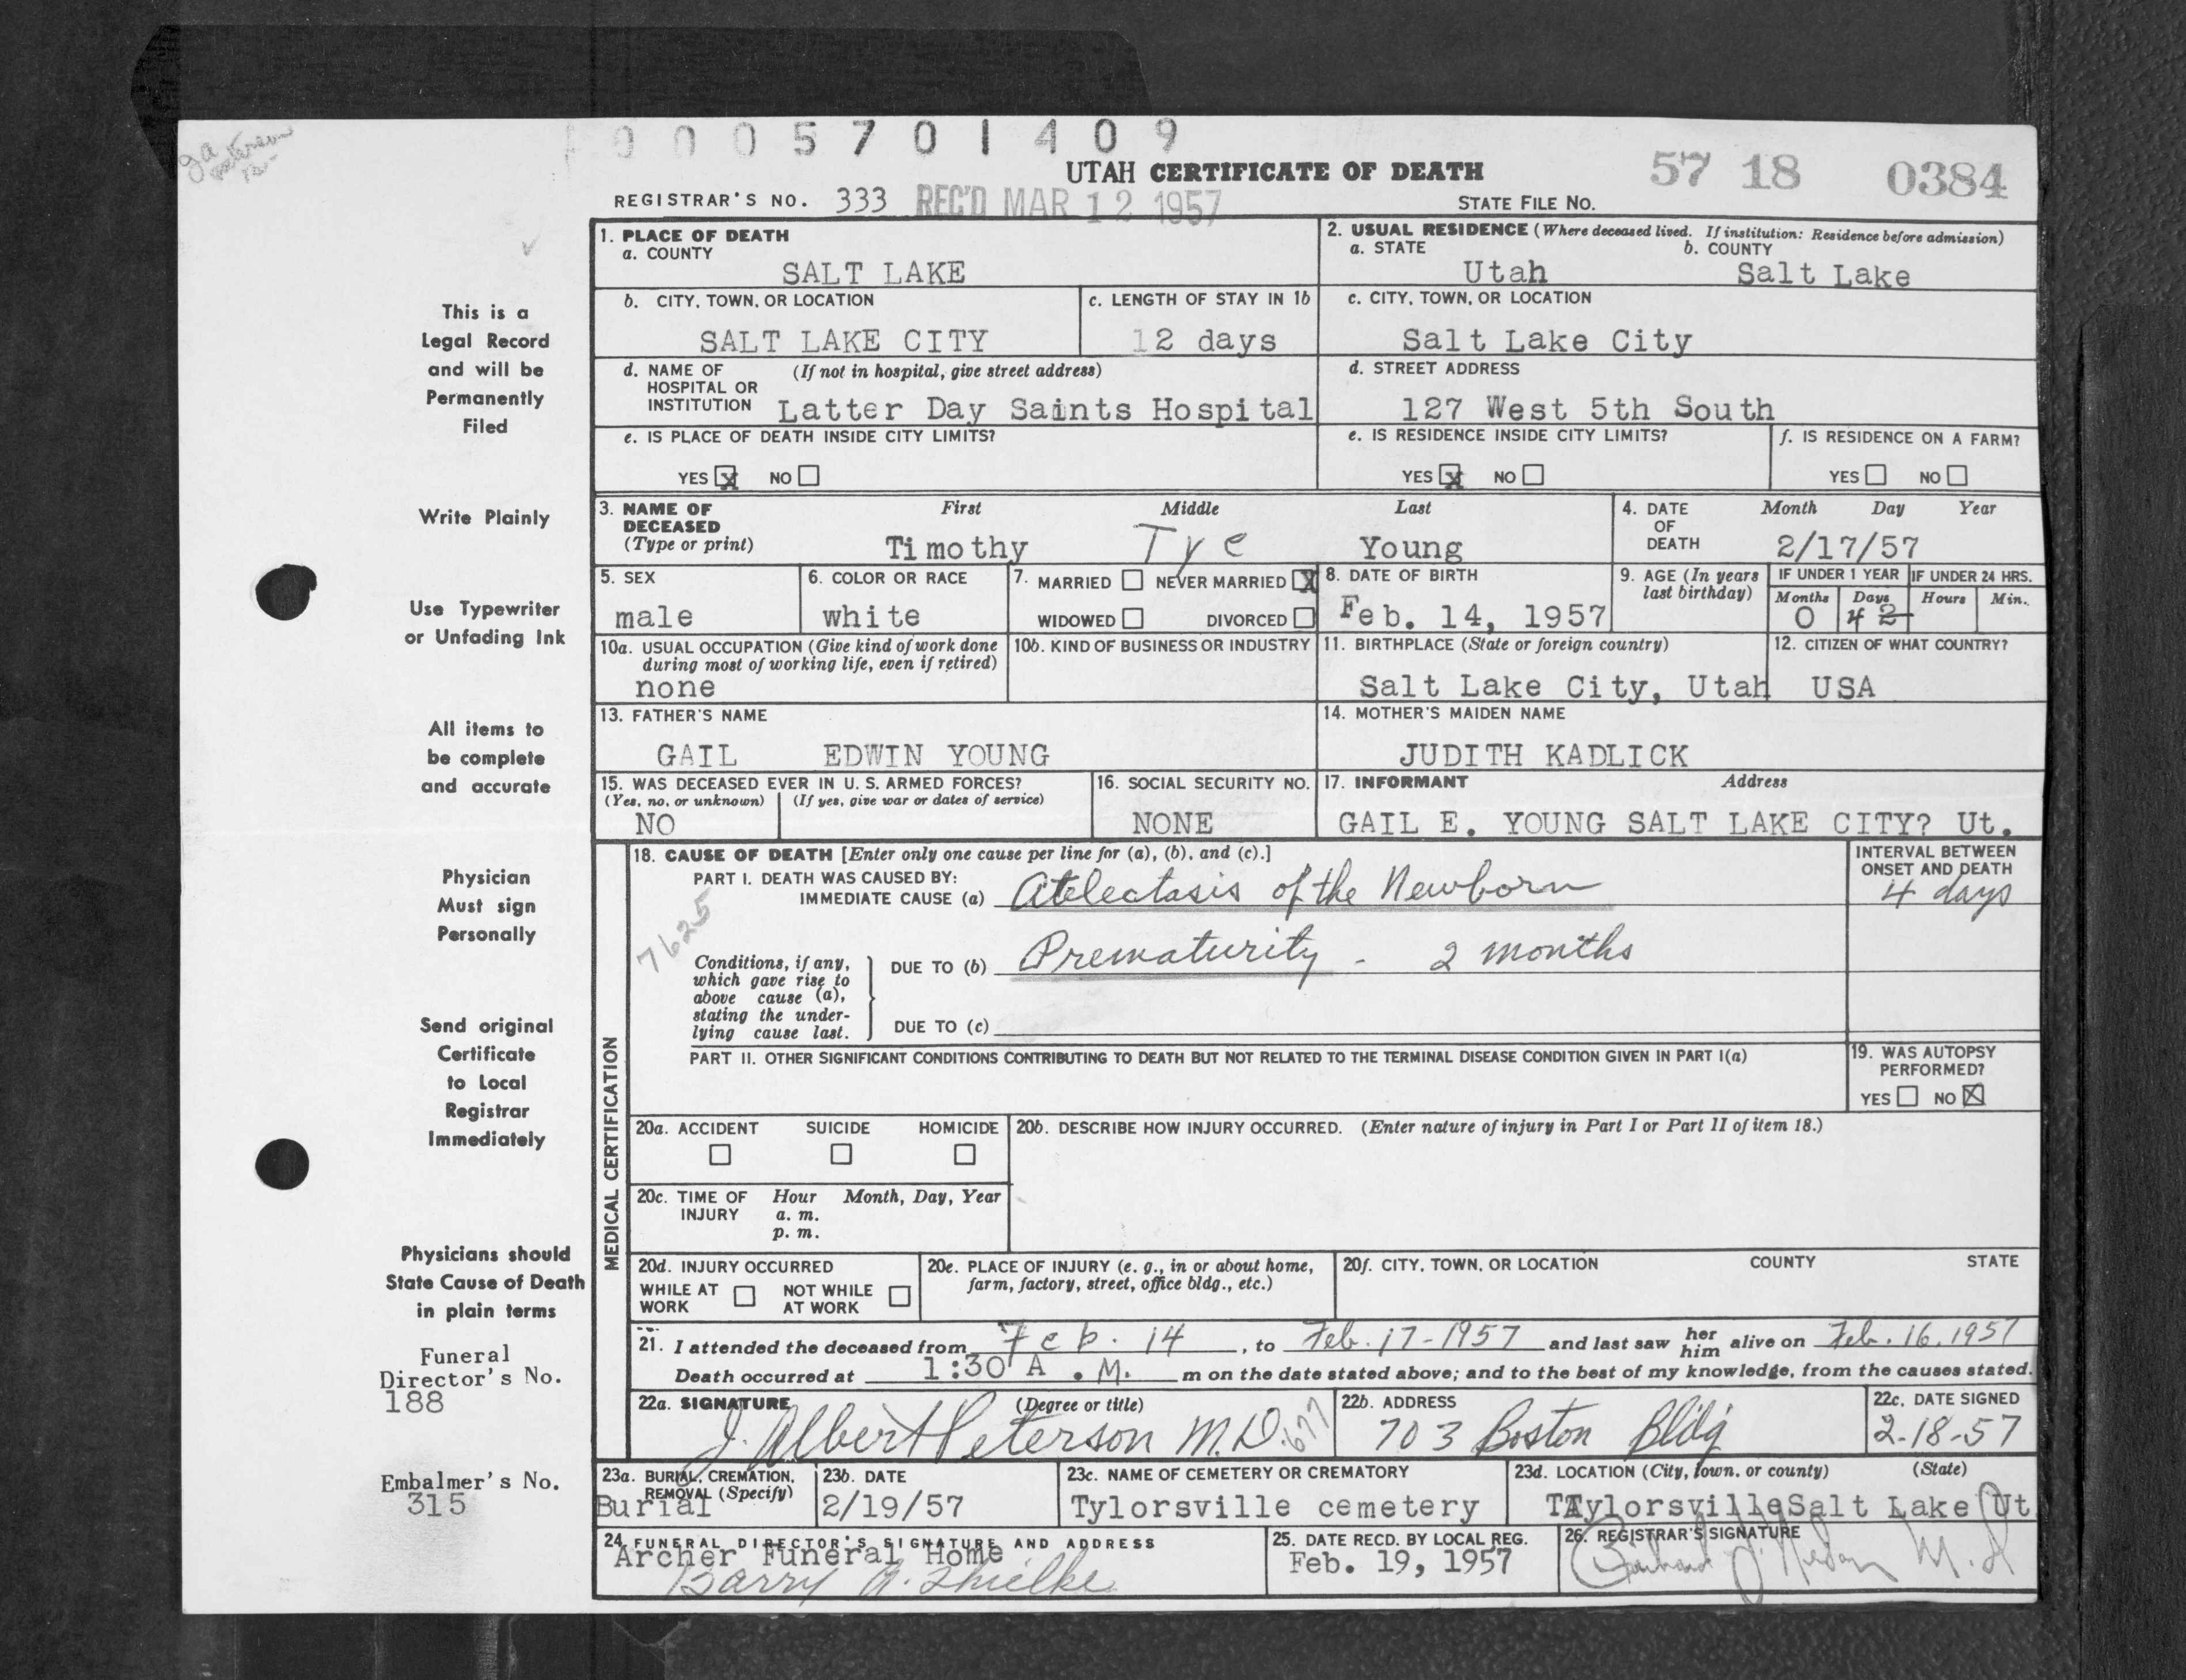 0005701409
UTAH CERTIFICATE OF DEATH
57 18 0384
REGISTRAR'S NO. 333 REC'D MAR 12 1957 STATE FILE NO.
This is a
Legal Record
and will be
Permanently
Filed
Write Plainly
Use Typewriter
or Unfading Ink
All items to
be complete
and accurate
Physician
Must sign
Personally
Send original
Certificate
to Local
Registrar
Immediately
Physicians should
State Cause of Death
in plain terms
Funeral
Director's No.
188
Embalmer's No.
315
1. PLACE OF DEATH
a. COUNTY
SALT LAKE
2. USUAL RESIDENCE (Where deceased lived. If institution: Residence before admission)
a. STATE b. COUNTY
Utah Salt Lake
b. CITY, TOWN, OR LOCATION
SALT LAKE CITY
c. LENGTH OF STAY IN 1b
12 days
c. CITY, TOWN, OR LOCATION
Salt Lake City
d. NAME OF (If not in hospital, give street address)
HOSPITAL OR
INSTITUTION Latter Day Saints Hospital
d. STREET ADDRESS
127 West 5th South
e. IS PLACE OF DEATH INSIDE CITY LIMITS?
YES X NO
e. IS RESIDENCE INSIDE CITY LIMITS?
YES X NO
f. IS RESIDENCE ON A FARM?
YES NO
3. NAME OF First Middle Last
DECEASED
(Type or print) Timothy Tye Young
4. DATE Month Day Year
OF
DEATH 2/17/57
5. SEX
male
6. COLOR OR RACE
white
7. MARRIED NEVER MARRIED X
WIDOWED DIVORCED
8. DATE OF BIRTH
Feb. 14, 1957
9. AGE (In years
last birthday)
IF UNDER 1 YEAR IF UNDER 24 HRS.
Months Days Hours Min.
0 4 2
10a. USUAL OCCUPATION (Give kind of work done
during most of working life, even if retired)
none
10b. KIND OF BUSINESS OR INDUSTRY
11. BIRTHPLACE (State or foreign country)
Salt Lake City, Utah
12. CITIZEN OF WHAT COUNTRY?
USA
13. FATHER'S NAME
GAIL EDWIN YOUNG
14. MOTHER'S MAIDEN NAME
JUDITH KADLICK
15. WAS DECEASED EVER IN U. S. ARMED FORCES?
(Yes, no, or unknown) (If yes, give war or dates of service)
NO
16. SOCIAL SECURITY NO.
NONE
17. INFORMANT Address
GAIL E. YOUNG SALT LAKE CITY? Ut.
MEDICAL CERTIFICATION
18. CAUSE OF DEATH [Enter only one cause per line for (a), (b), and (c).]
PART I. DEATH WAS CAUSED BY:
IMMEDIATE CAUSE (a) Atelectasis of the Newborn
INTERVAL BETWEEN
ONSET AND DEATH
4 days
7625
Conditions, if any,
which gave rise to
above cause (a),
stating the under-
lying cause last.
DUE TO (b) Prematurity - 2 months
DUE TO (c)
PART II. OTHER SIGNIFICANT CONDITIONS CONTRIBUTING TO DEATH BUT NOT RELATED TO THE TERMINAL DISEASE CONDITION GIVEN IN PART I(a)
19. WAS AUTOPSY
PERFORMED?
YES NO X
20a. ACCIDENT SUICIDE HOMICIDE
20b. DESCRIBE HOW INJURY OCCURRED. (Enter nature of injury in Part I or Part II of item 18.)
20c. TIME OF Hour Month, Day, Year
INJURY a. m.
p. m.
20d. INJURY OCCURRED
WHILE AT NOT WHILE
WORK AT WORK
20e. PLACE OF INJURY (e. g., in or about home,
farm, factory, street, office bldg., etc.)
20f. CITY, TOWN, OR LOCATION COUNTY STATE
21. I attended the deceased from Feb. 14, to Feb. 17-1957 and last saw her him alive on Feb. 16, 1957
Death occurred at 1:30 A. M. m on the date stated above; and to the best of my knowledge, from the causes stated.
22a. SIGNATURE (Degree or title)
J. Albert Peterson M.D. 677
22b. ADDRESS
703 Boston Bldg
22c. DATE SIGNED
2-18-57
23a. BURIAL, CREMATION,
REMOVAL (Specify)
Burial
23b. DATE
2/19/57
23c. NAME OF CEMETERY OR CREMATORY
Tylorsville cemetery
23d. LOCATION (City, town, or county) (State)
TAylorsvilleSalt Lake Ut
24. FUNERAL DIRECTOR'S SIGNATURE AND ADDRESS
Archer Funeral Home
25. DATE RECD. BY LOCAL REG.
Feb. 19, 1957
26. REGISTRAR'S SIGNATURE
M.D